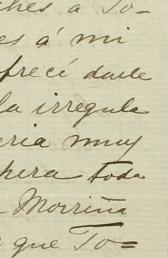 ches a To-
es á mi
frecí darle
la irregula
eria muy
pera toda
Morriña
que To=